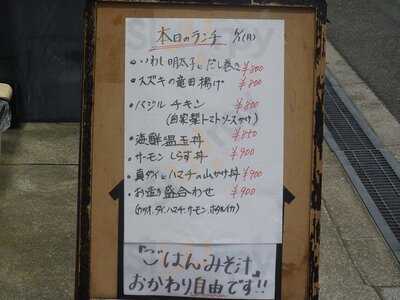 本日のランチ
・いわし明太子とだし巻き ¥800
・スズキの竜田揚げ ¥800
・バジルチキン ¥800
(自家製トマトソースがけ)
・海鮮温玉丼 ¥850
・サーモンしらす丼 ¥900
・真ダイとハマチの山かけ丼 ¥900
・お造り盛合わせ ¥900
(カツオ、ダイ、ハマチ、サーモン、ホタルイカ)
『ごはん・みそ汁』
おかわり自由です!!